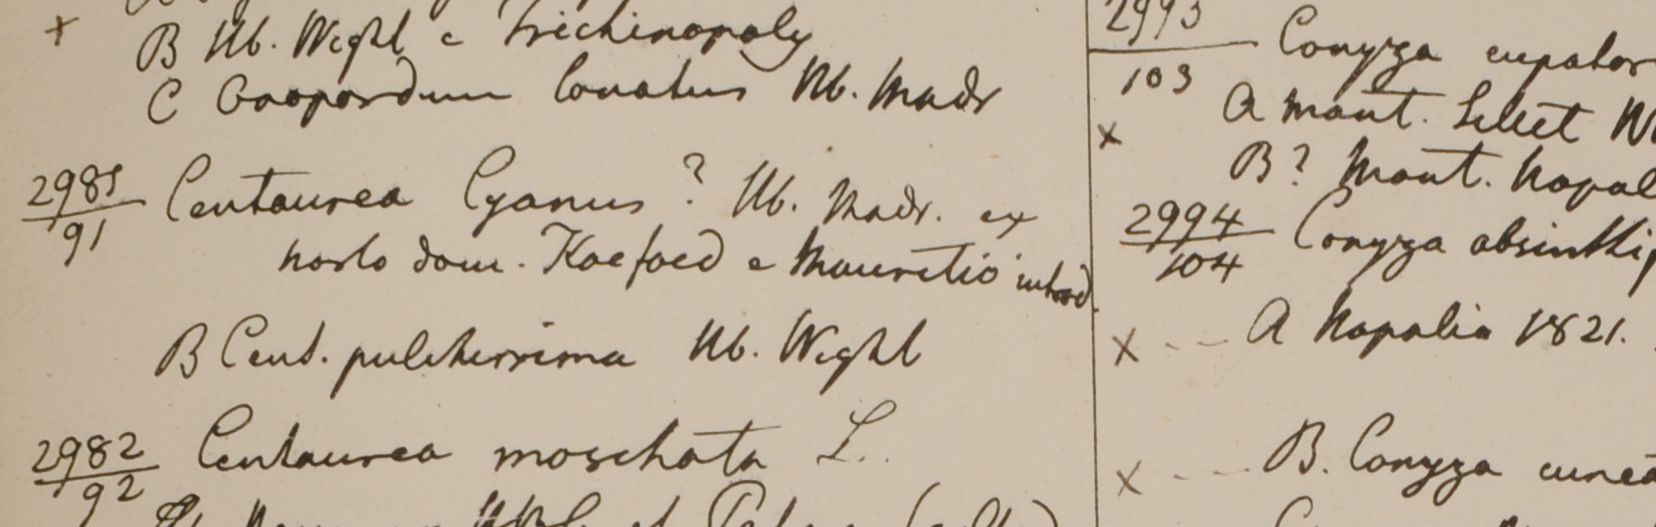 B Hb. Wight e Trichinopoly
C Onopordum lonatus Hb. Madr
2981/91 Centaurea Cyanus? Hb. Madr. ex
horto dom. Koefoed e Mauretio introd.
B Cent. pulcherrima Hb. Wight
2982/92 Centaurea moschata L.
2993/103 Conyza eupator
A mont. Silhet
B? mont. Napal
2994/104 Conyza absinthif
A Napalia 1821.
B. Conyza cunea